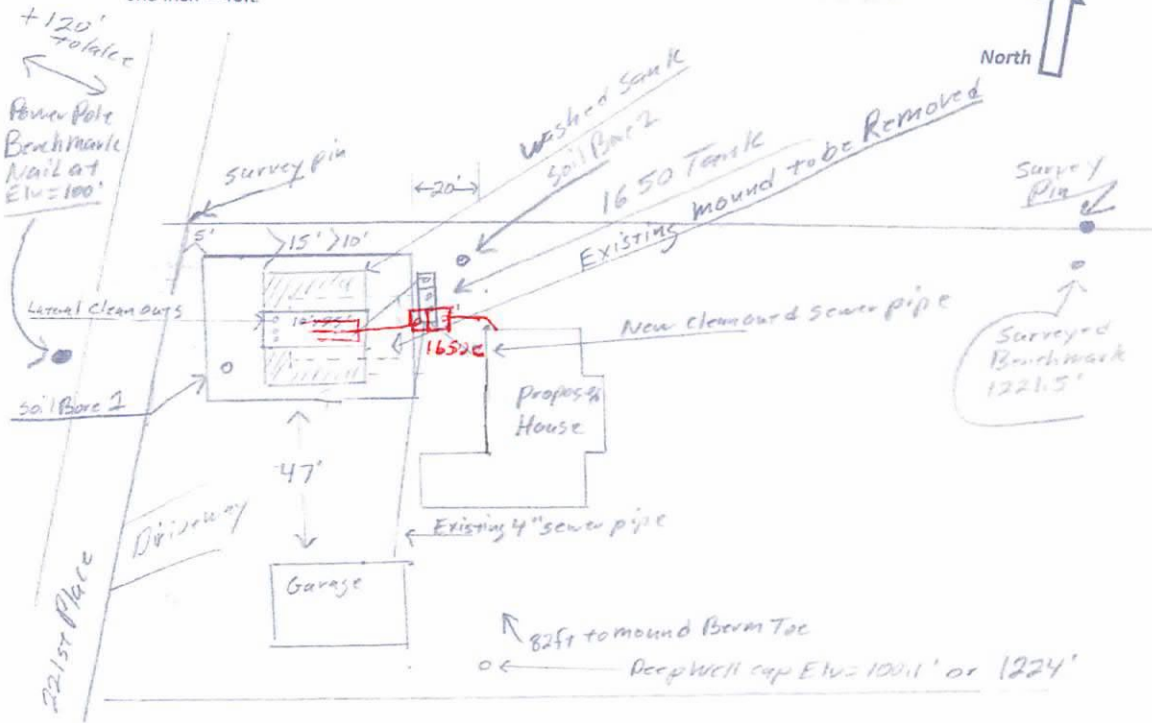 +120'
to lake
North
Power Pole
Benchmark
Nail at
Elv=100'
Survey pin
washed sank
Soil Bore 2
1650 Tank
Existing mound to be Removed
Survey
Pin
←20'→
5'
15' 10'
Lateral Cleanouts
New Cleanout & sewer pipe
1650c
Surveyed
Benchmark
1221.5'
Soil Bore 1
Proposed
House
47'
Driveway
Existing 4" sewer pipe
Garage
221st Place
82ft to mound Berm Toe
Deep Well cap Elv=100.1' or 1224'